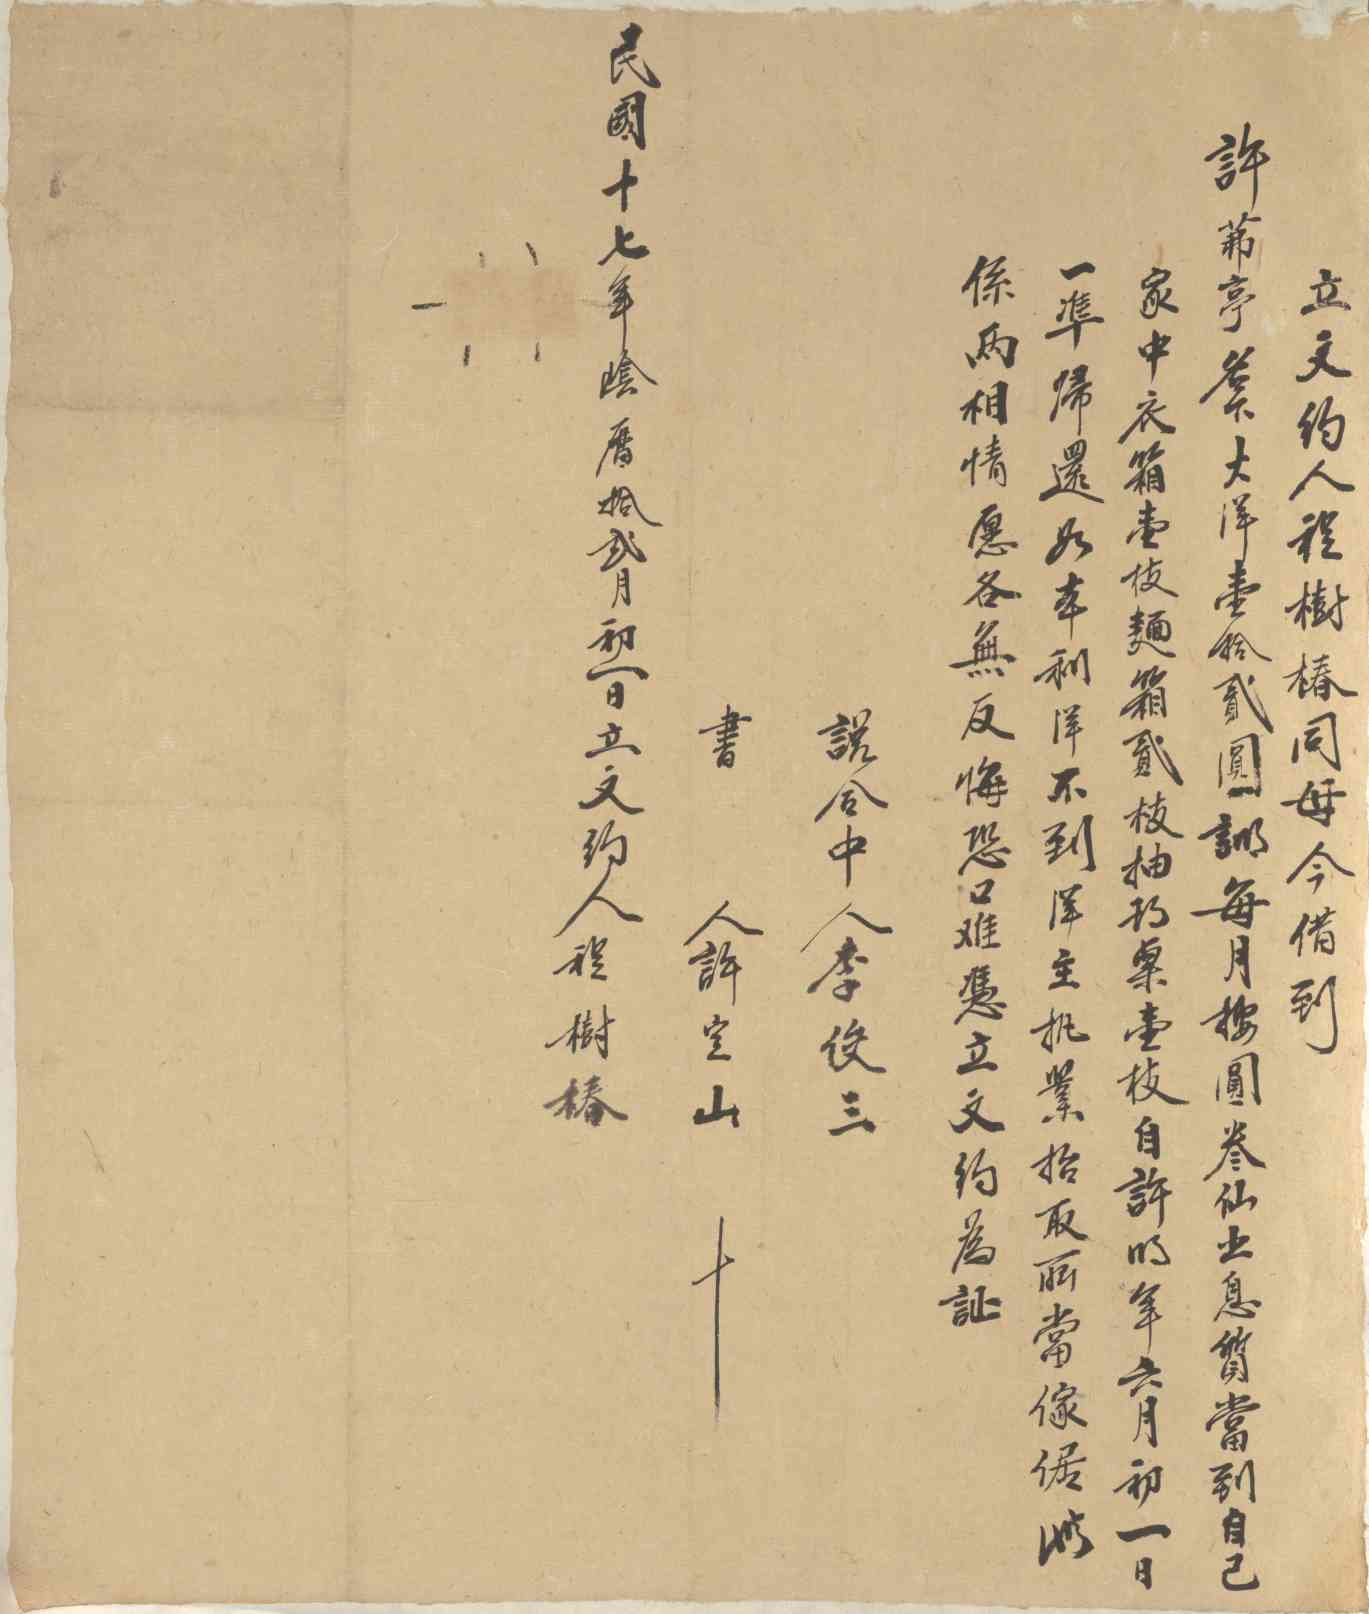 立文約人程樹椿同母今借到
許茀亭名下大洋壹拾貳圓訓每月按圓叁仙出息質當到自己
家中衣箱壹枝麵箱貳枝抽形桌壹枝自許明年六月初一日
一準歸還如本利洋不到洋主執業抬取所當傢俱此
係兩相情愿各無反悔恐口难憑立文約為証
説合中人李俊三
書 人許定山 十
民國十七年陰曆拾弍月初一日立文約人程樹椿